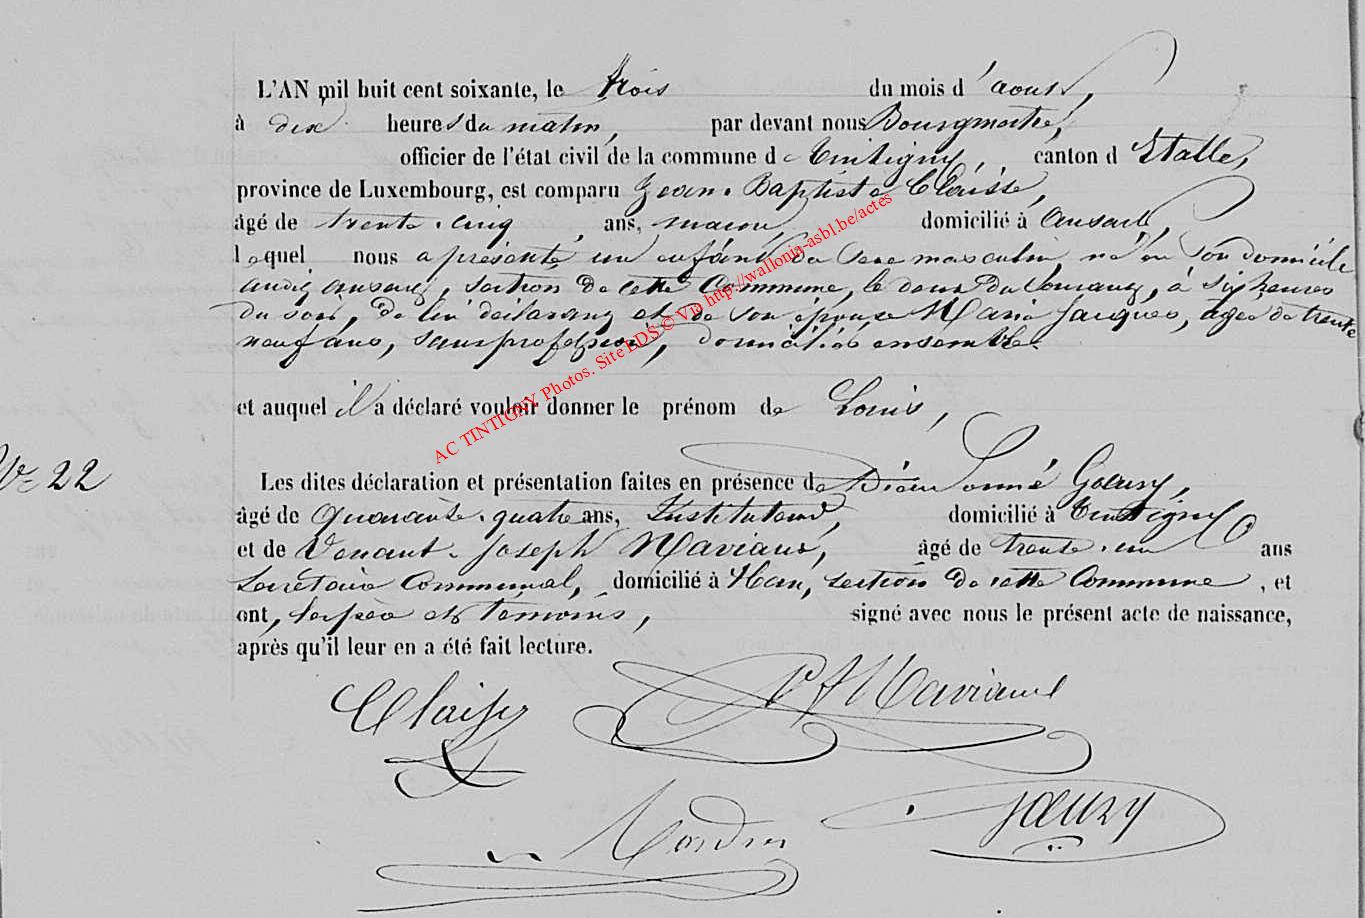 L'AN mil huit cent soixante, le trois du mois d'août,
à dix heures du matin, par devant nous Bourgmestre,
officier de l'état civil de la commune de Tintigny, canton d'Etalle,
province de Luxembourg, est comparu Jean-Baptiste Claisse,
âgé de trente-cinq ans, maçon, domicilié à Ansart,
lequel nous a présenté un enfant du sexe masculin, né en son domicile
audit Ansart, section de cette Commune, le deux du courant, à six heures
du soir, de lui déclarant et de son épouse Marie Jacques, âgée de trente
neuf ans, sans profession, domiciliés ensemble.
et auquel il a déclaré vouloir donner le prénom de Louis,
N° 22
Les dites déclaration et présentation faites en présence de Dieudonné Goeury,
âgé de quarante-quatre ans, Instituteur, domicilié à Tintigny
et de Venant-Joseph Maviaux, âgé de trente-un ans
Secrétaire Communal, domicilié à Han, section de cette Commune, et
ont, les père et témoins, signé avec nous le présent acte de naissance,
après qu'il leur en a été fait lecture.
AC TINTIGNY Photos. Site EDS © Via http://wallonia-asbl.be/actes